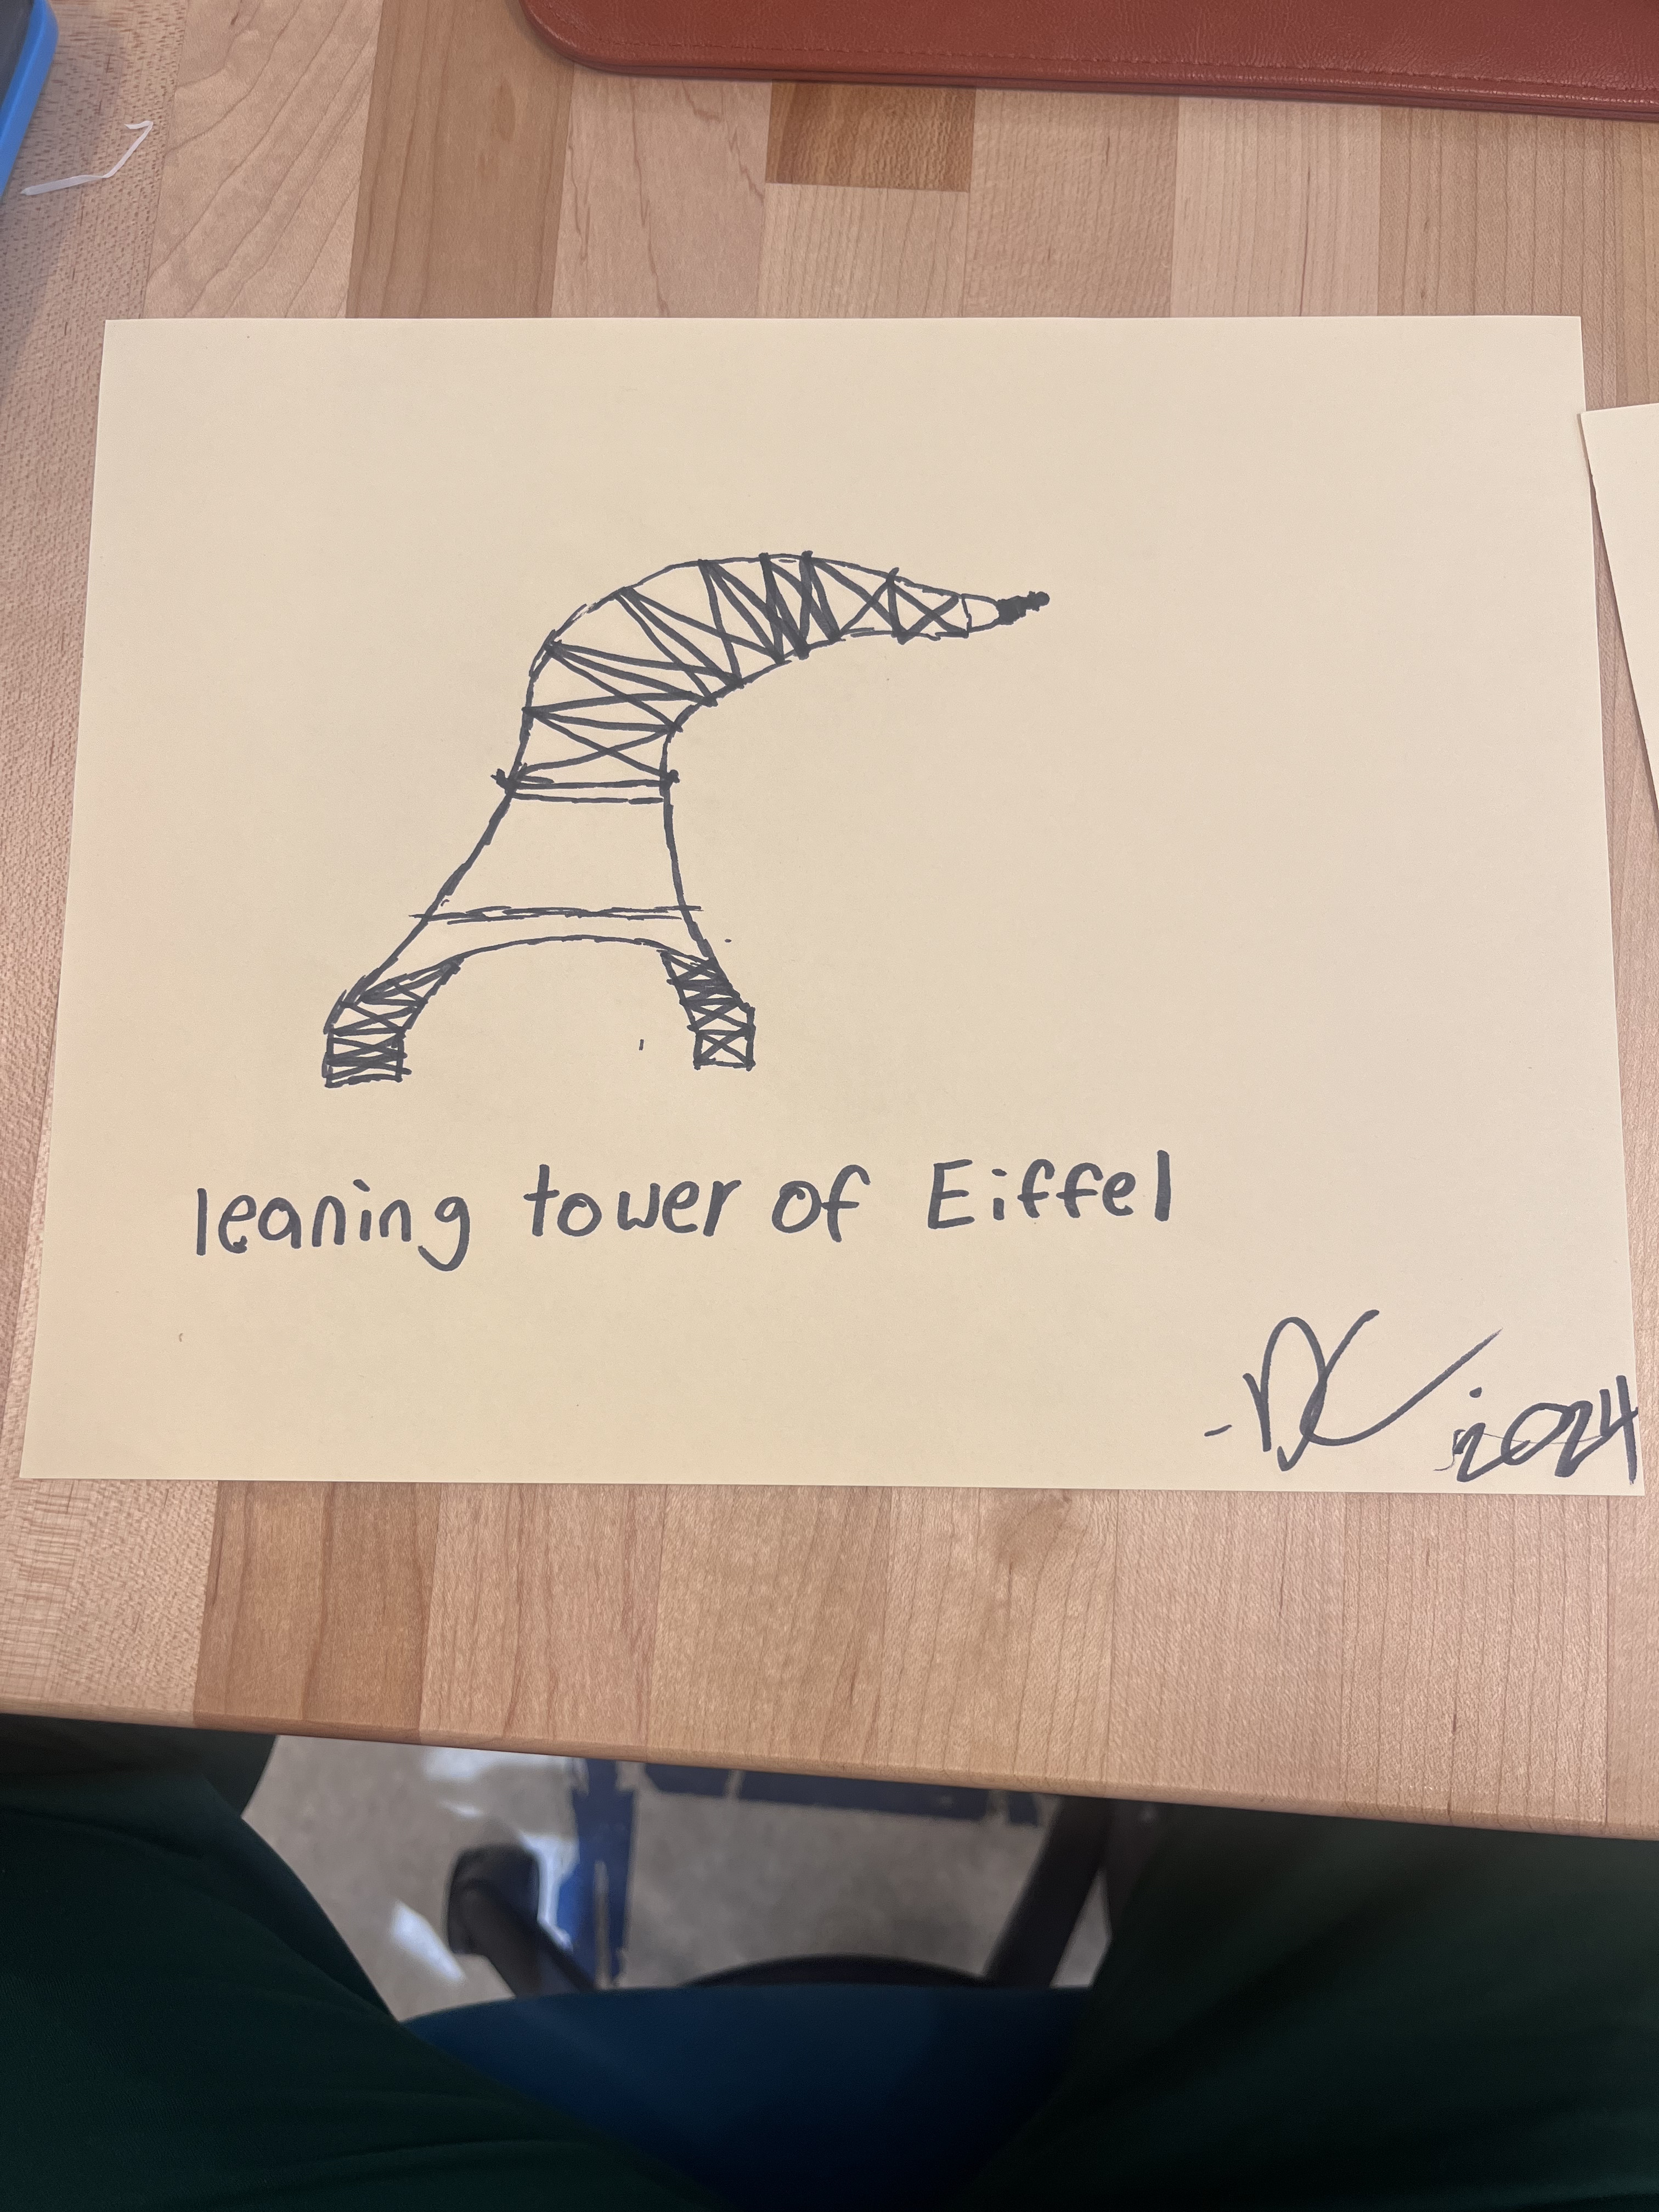 leaning tower of Eiffel
-DC 2024